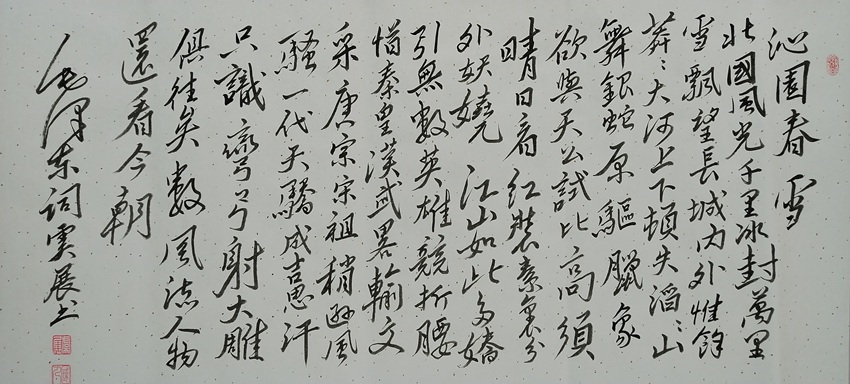 沁園春 雪
北國風光千里冰封萬里
雪飄望長城内外惟餘
莽々大河上下頓失滔々山
舞銀蛇原驅臘象
欲與天公試比高須
晴日看紅裝素裹分
外妖嬈江山如此多嬌
引無數英雄競折腰
惜秦皇漢武畧輸文
采唐宗宋祖稍遜風
騷一代天驕成吉思汗
只識彎弓射大雕
俱往矣數風流人物
還看今朝
毛泽东词 展书